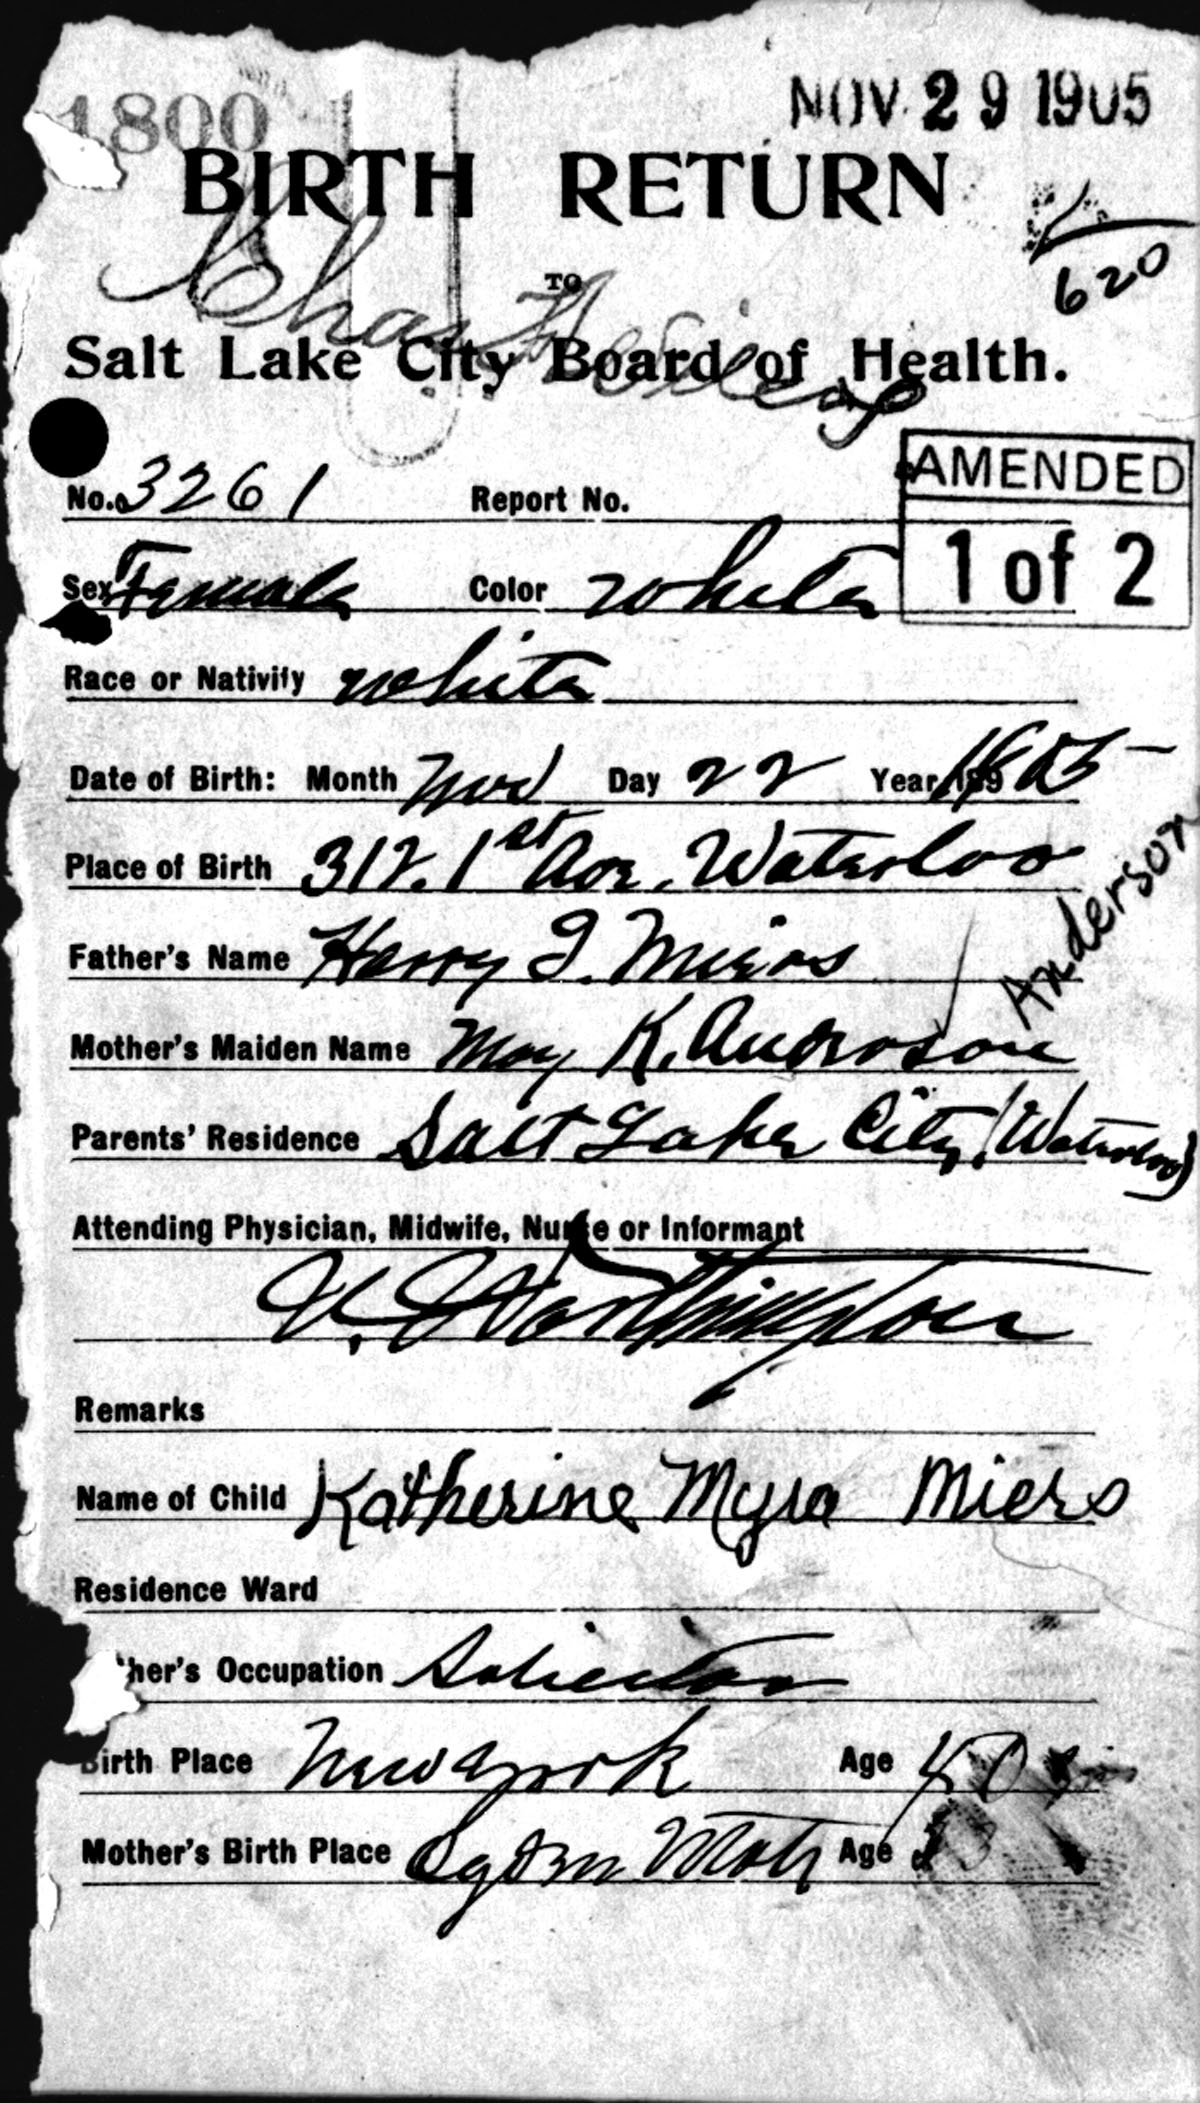 1800
NOV 29 1905
BIRTH RETURN
TO
620
Salt Lake City Board of Health.
AMENDED
1 of 2
No. 3261 Report No.
Sex Female Color White
Race or Nativity White
Date of Birth: Month Nov Day 22 Year 189 1905
Place of Birth 312. 1st Ave. Waterloo
Father's Name Harry I. Miers
Anderson
Mother's Maiden Name May K. Anderson
Parents' Residence Salt Lake City (Waterloo)
Attending Physician, Midwife, Nurse or Informant
Worthington
Remarks
Name of Child Katherine Myra Miers
Residence Ward
her's Occupation Solicitor
Birth Place New York Age 40
Mother's Birth Place Ogden Utah Age